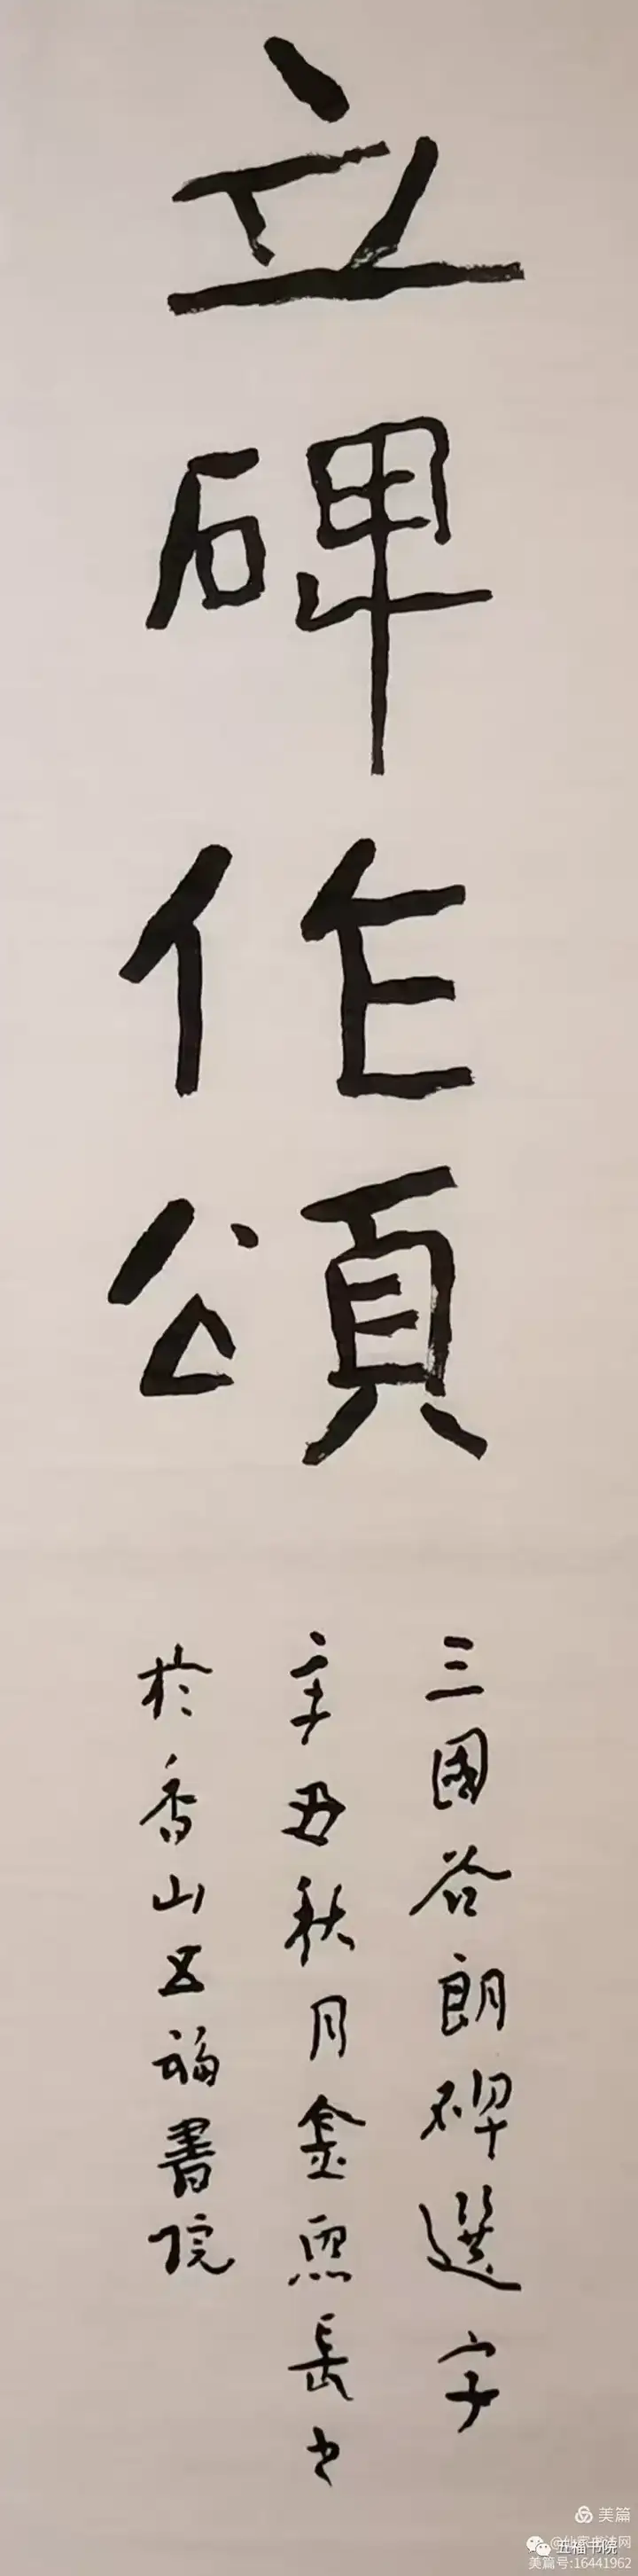 立碑作頌
三國谷朗碑選字
辛丑秋月金熙長书
於香山五福書院
美篇
五福书院
美篇号:16441962